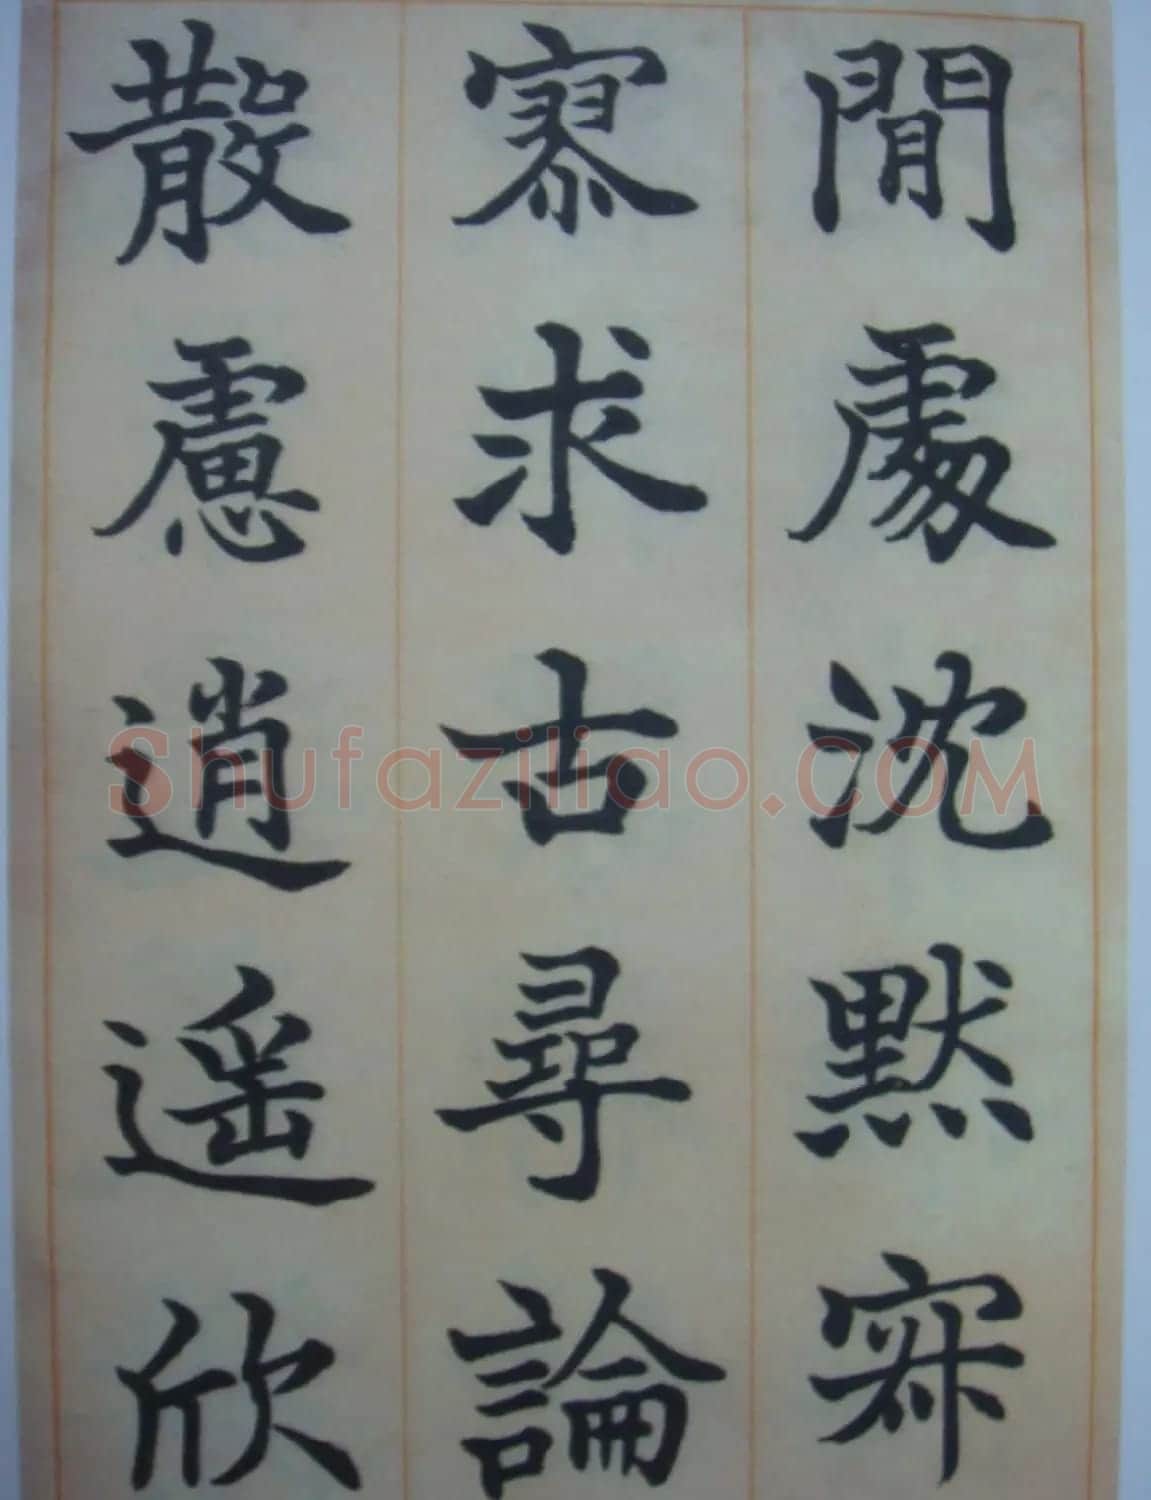 閒處沈默寂
寥求古尋論
散慮逍遥欣
Shufaziliao.COM